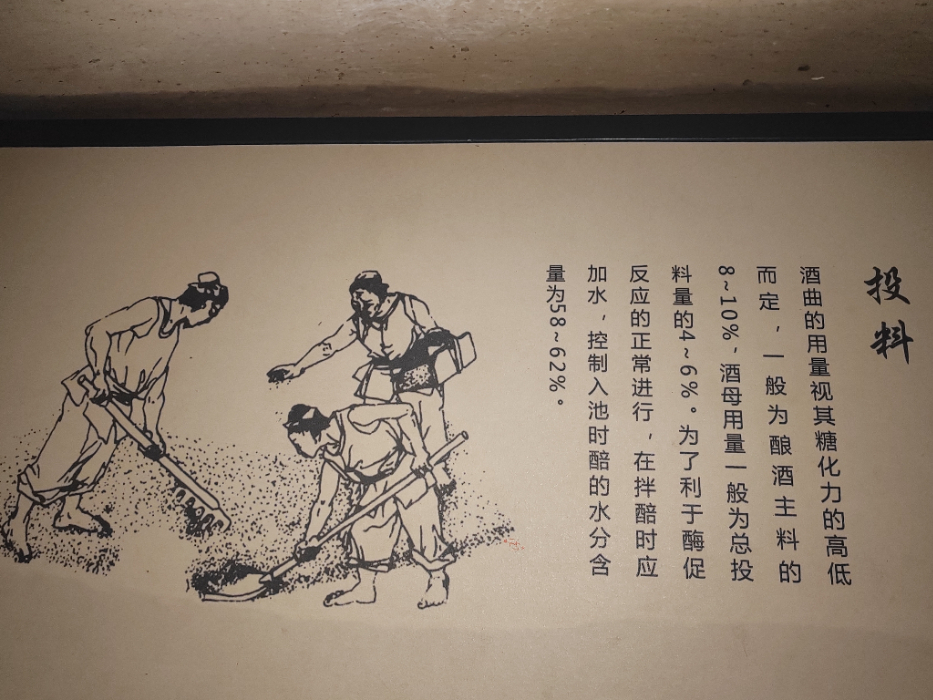 投料
酒曲的用量视其糖化力的高低
而定，一般为酿酒主料的
8~10%，酒母用量一般为总投
料量的4~6%。为了利于酶促
反应的正常进行，在拌醅时应
加水，控制入池时醅的水分含
量为58~62%。